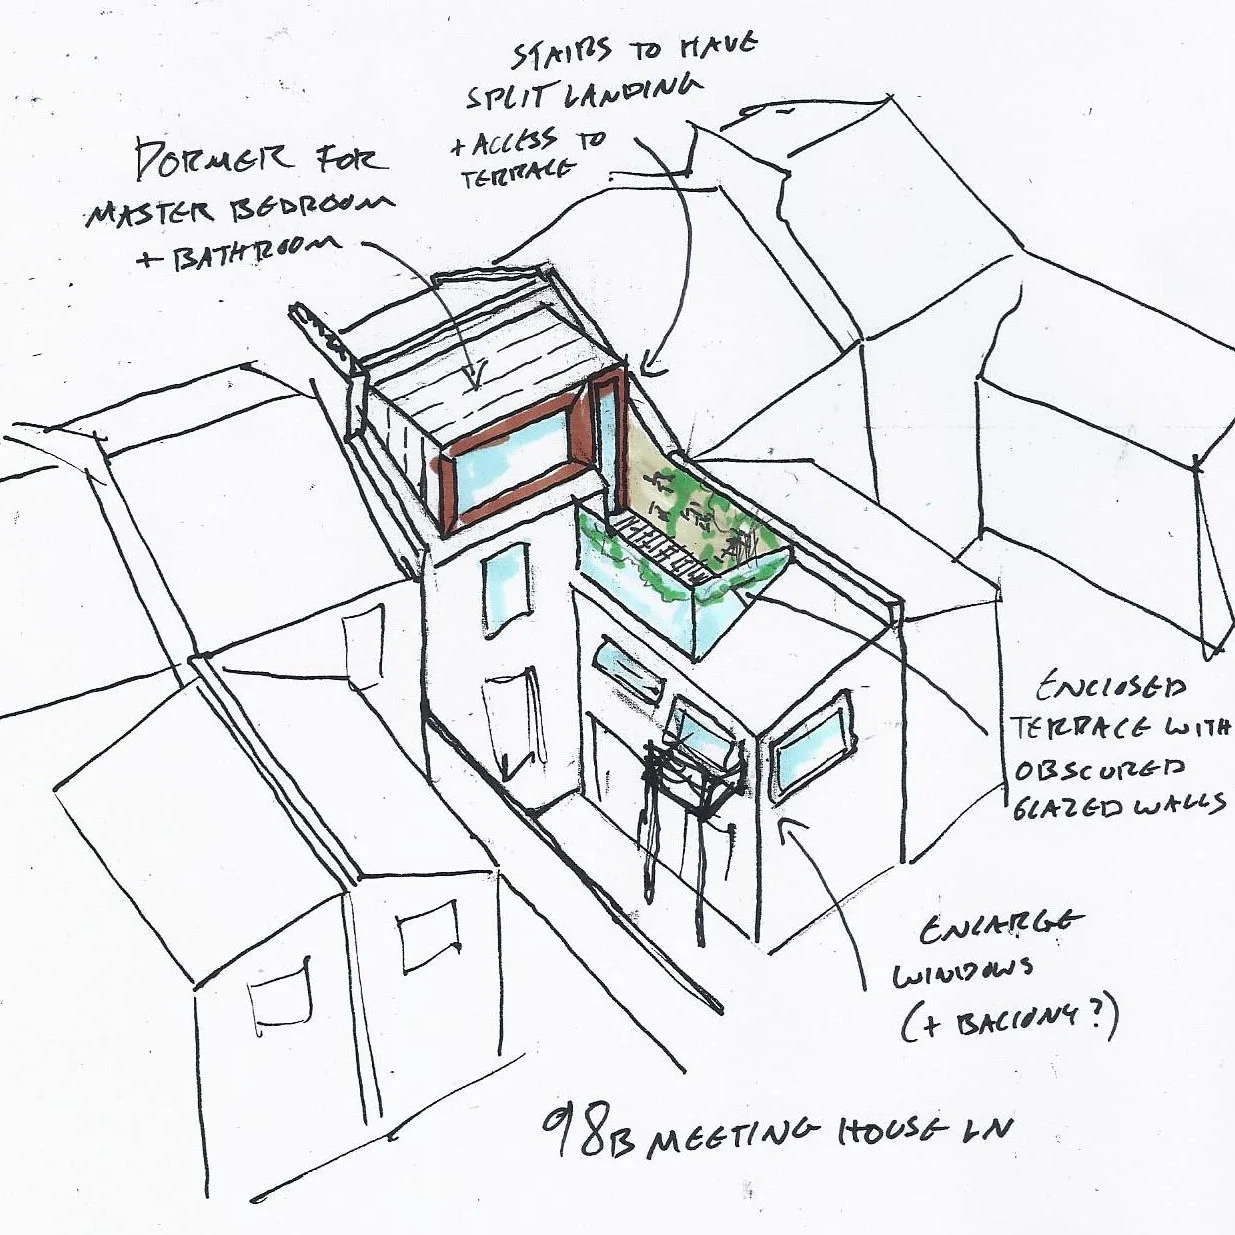 STAIRS TO HAVE
SPLIT LANDING
+ ACCESS TO
TERRACE
DORMER FOR
MASTER BEDROOM
+ BATHROOM
ENCLOSED
TERRACE WITH
OBSCURED
GLAZED WALLS
ENLARGE
WINDOWS
(+ BALCONY?)
98B MEETING HOUSE LN